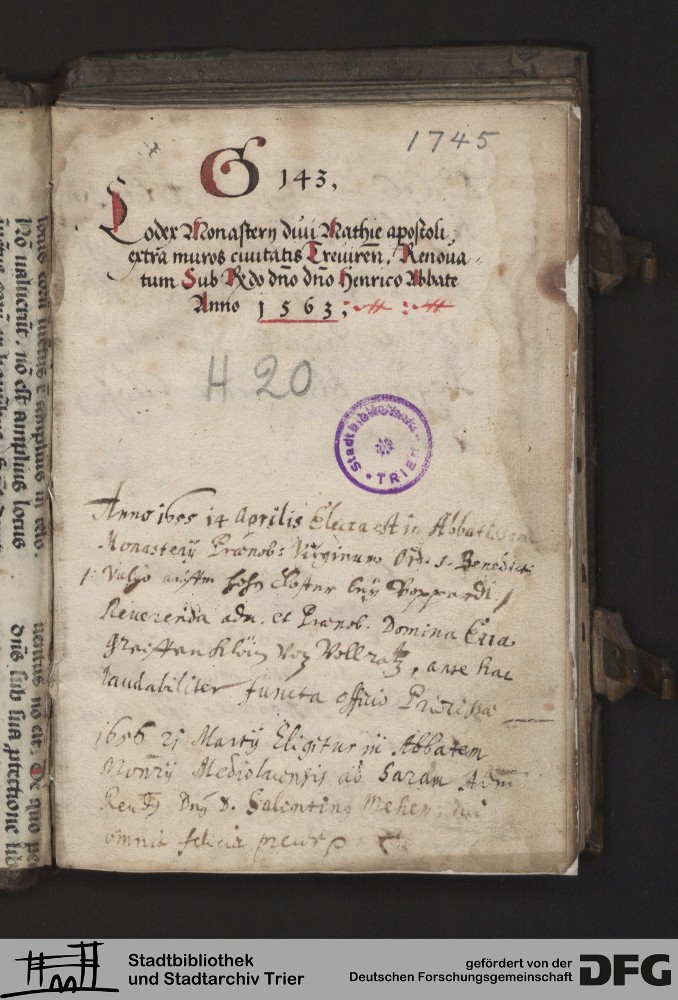 1745
G 143,
Codex Monasterij diui Mathie apostoli
extra muros ciuitatis Treuireñ, Renoua-
tum Sub Rdo dño dño Henrico Abbate
Anno 1563;
H 20
Stadtbibliothek
TRIER
Anno 1655 14 Aprilis Electa est in
Monasterij Prænob: Virginum Ord: S. Benedicti
Vulgo auffm hohn Closter bey Boppardt
Reuerenda adm. et Prænob. Domina Eua
Greiffenklöin Von Vollratz, ante hac
laudabiliter functa officio
1656 21 Martij Eligitur in Abbatem
Mediolacensis ad Saram Adm
D. Salentinus
omnia felicia precor
Stadtbibliothek
und Stadtarchiv Trier
gefördert von der
Deutschen Forschungsgemeinschaft
DFG